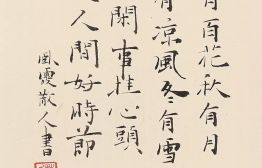 有百花秋有月
有凉風冬有雪
閑事挂心頭
人間好時節
散人書